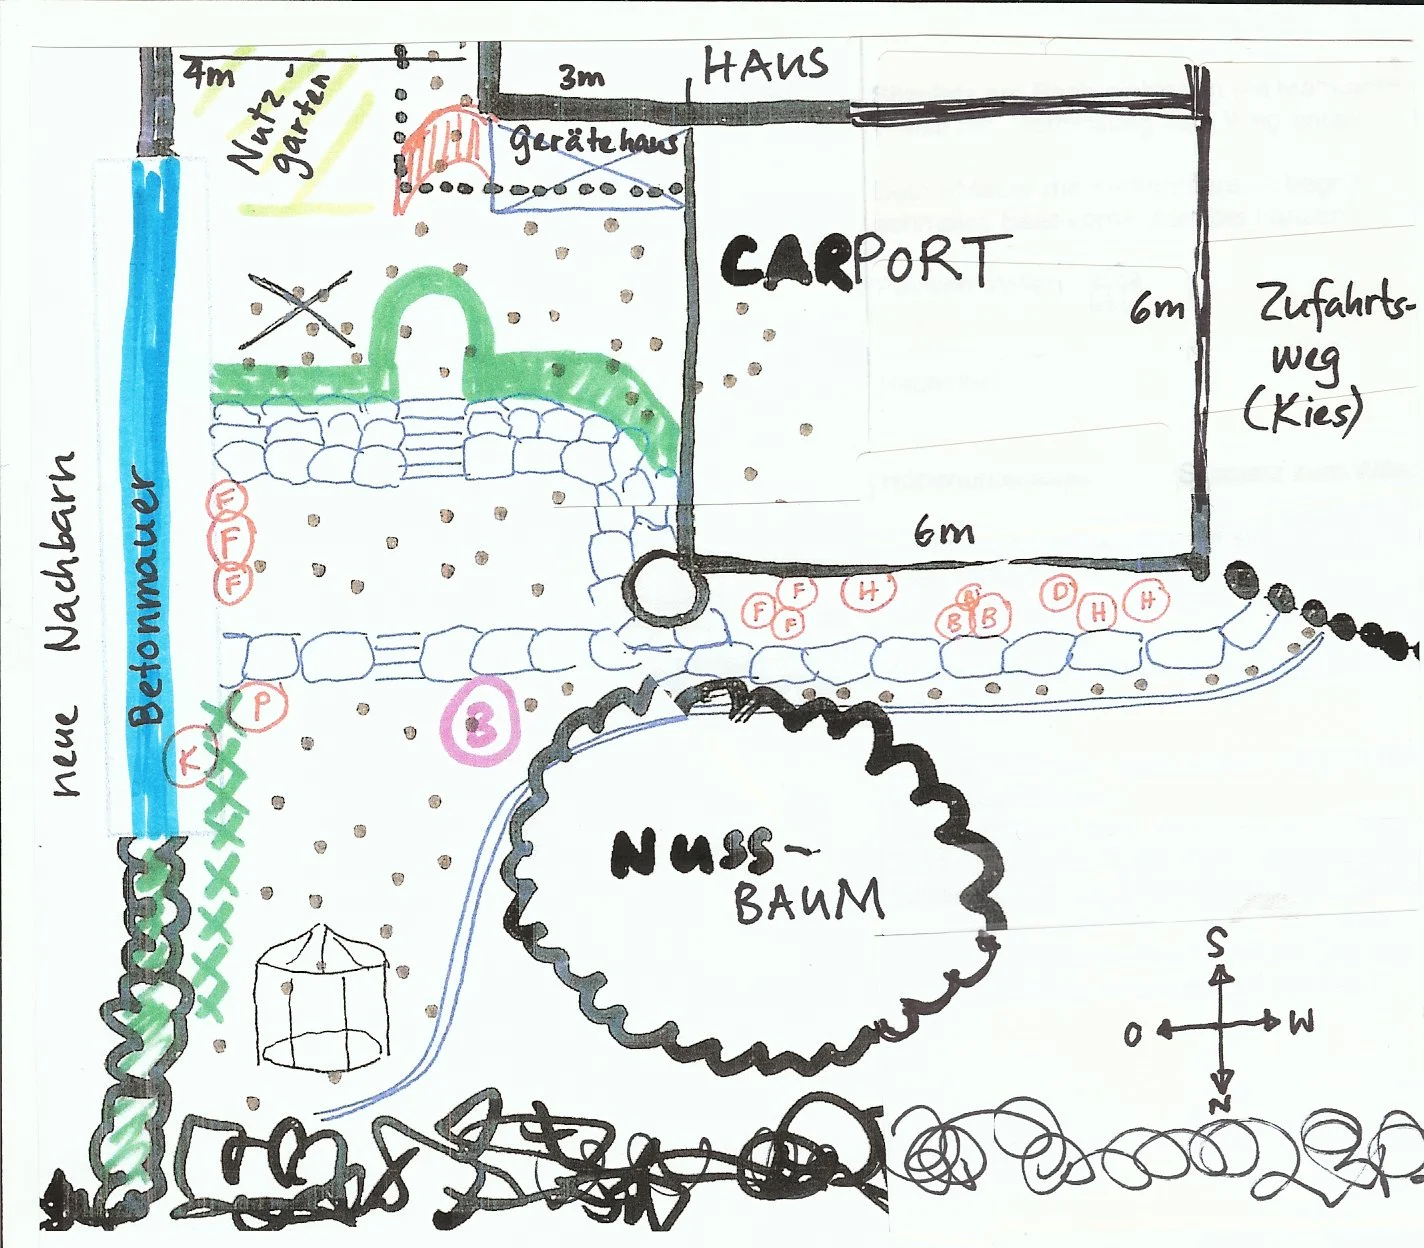 4m
3m
HAUS
Nutz-
garten
Gerätehaus
CARPORT
6m
Zufahrts-
weg
(Kies)
neue Nachbarn
Betonmauer
F
F
F
6m
F
F
F
H
B
B
D
H
H
P
K
B
NUSS-
BAUM
S
O
W
N